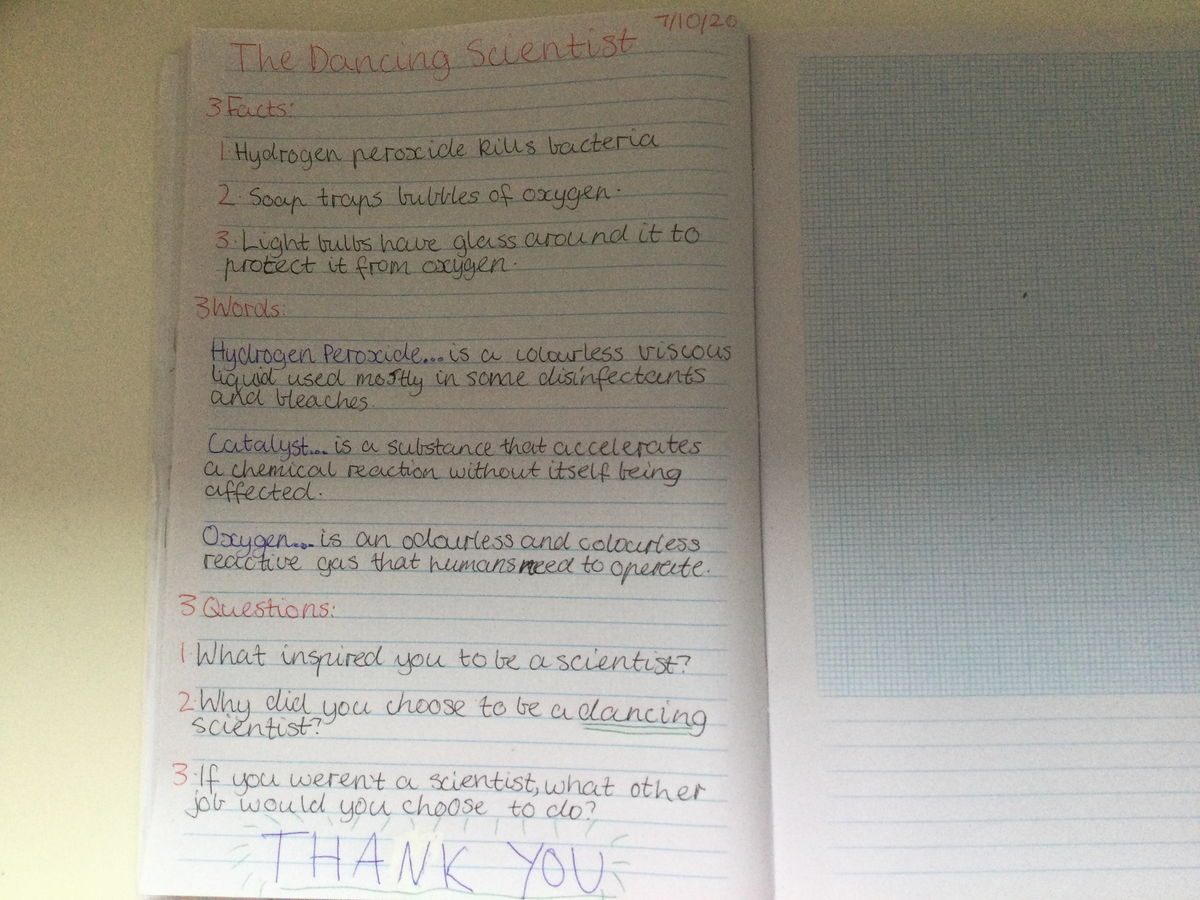 7/10/20
The Dancing Scientist
3 Facts:
1. Hydrogen peroxide kills bacteria
2. Soap traps bubbles of oxygen.
3. Light bulbs have glass around it to
protect it from oxygen.
3 Words:
Hydrogen Peroxide... is a colourless viscous
liquid used mostly in some disinfectants
and bleaches.
Catalyst... is a substance that accelerates
a chemical reaction without itself being
affected.
Oxygen... is an odourless and colourless
reactive gas that humans need to operate.
3 Questions:
1 What inspired you to be a scientist?
2. Why did you choose to be a dancing
scientist?
3. If you weren't a scientist, what other
job would you choose to do?
THANK YOU